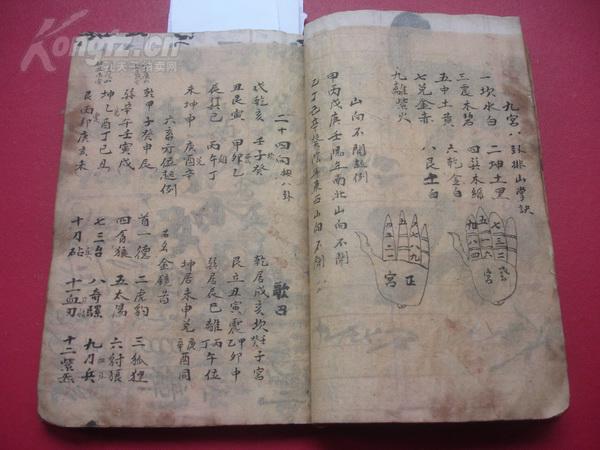 九宮八卦排山掌訣
一坎水白
二坤土黑
三震木碧
四巽木綠
五中土黃
六乾金白
七兌金赤
八艮土白
九離紫火
正宮
山向不開起例
甲丙戊庚壬陽年南北山向不開
乙丁己辛癸陰年東西山向不開
二十四向相八卦
戌乾亥 壬子癸
丑艮寅 甲卯乙
辰巽巳 丙午丁
未坤申 庚酉辛
歌曰
乾居戌亥坎子宮
艮立丑寅震甲卯中
巽居辰巳離丙午位
坤居未申兌庚辛酉同
六畜方位起例
乾甲子癸申辰
巽辛辛壬寅戌
坤乙酉丁巳丑
艮丙卯庚亥未
首一德 二虎豹 三狐狸
四貪狼 五太陽 六豺狼
七三台 八奇騾 九刀兵
十刀砧 十一血刃 十二紫炁
Kongfz.cn
孔夫子拍卖网